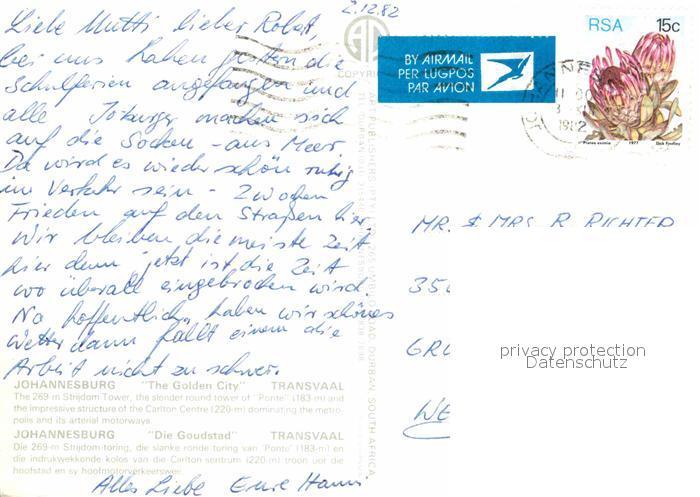 2.12.82
Liebe Mutti lieber Robert,
bei uns haben gestern die
Schulferien angefangen und
alle Joburger machen sich
auf die Socken - ans Meer.
Da wird es wieder schön ruhig
im Verkehr sein - 2 Wochen
Frieden auf den Straßen hier.
Wir bleiben die meiste Zeit
hier denn jetzt ist die Zeit
wo überall eingebrochen wird.
Na hoffentlich haben wir schönes
Wetter dann fällt einem die
Arbeit nicht zu schwer.
JOHANNESBURG "The Golden City" TRANSVAAL
The 269-m Strijdom Tower, the slender round tower of "Ponte" (183-m) and
the impressive structure of the Carlton Centre (220-m) dominating the metro-
polis and its arterial motorways.
JOHANNESBURG "Die Goudstad" TRANSVAAL
Die 269-m Strijdom-toring, die slanke ronde toring van 'Ponto' (183-m) en
die indrukwekkende kolos van die Carlton-sentrum (220-m) troon uit die
hoofstad en sy hoofmotorverkeersweë.
Alles Liebe Eure Hanni
COPYRIGHT
BY AIRMAIL
PER LUGPOS
PAR AVION
RSA 15c
1982
Protea eximia 1977 Dick Findlay
MR. & MRS R RICHTER
35
GR
WE
privacy protection
Datenschutz